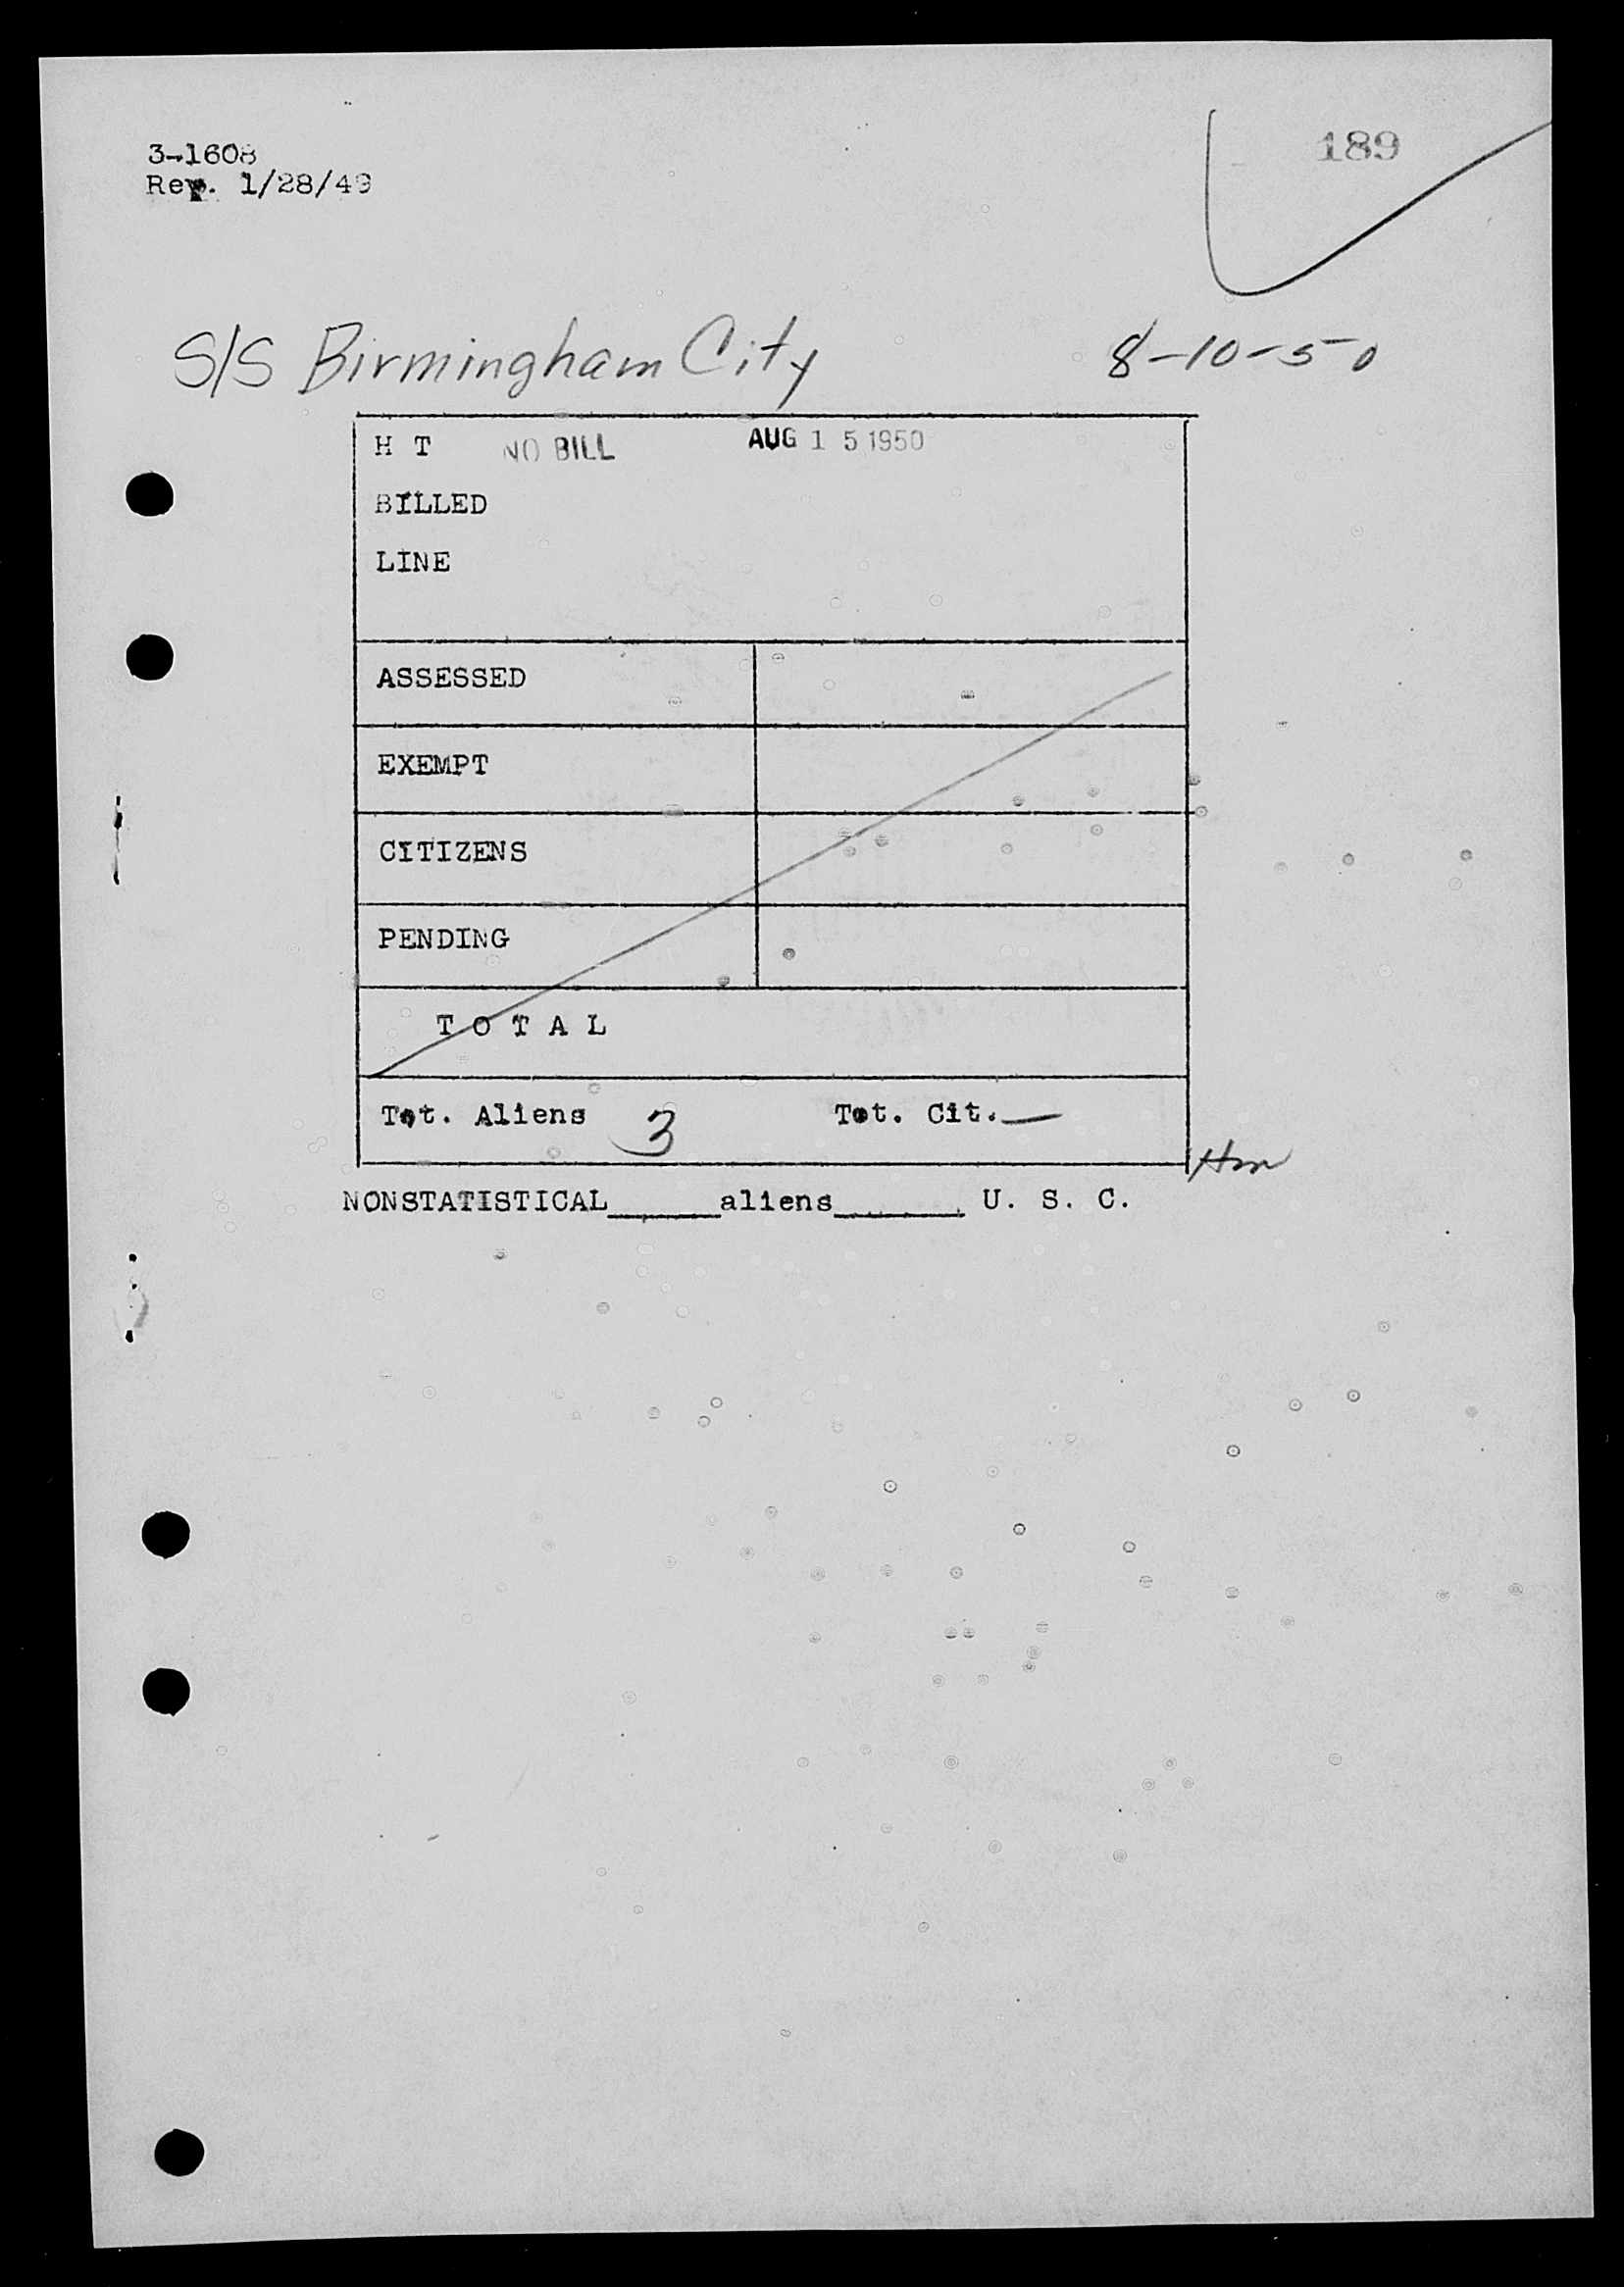 189
3-1608
Rev. 1/28/49
S/S Birmingham City 8-10-50
H T NO BILL AUG 15 1950
BILLED
LINE
ASSESSED
EXEMPT
CITIZENS
PENDING
T O T A L
Tot. Aliens 3 Tot. Cit. —
NONSTATISTICAL______aliens_______ U. S. C.